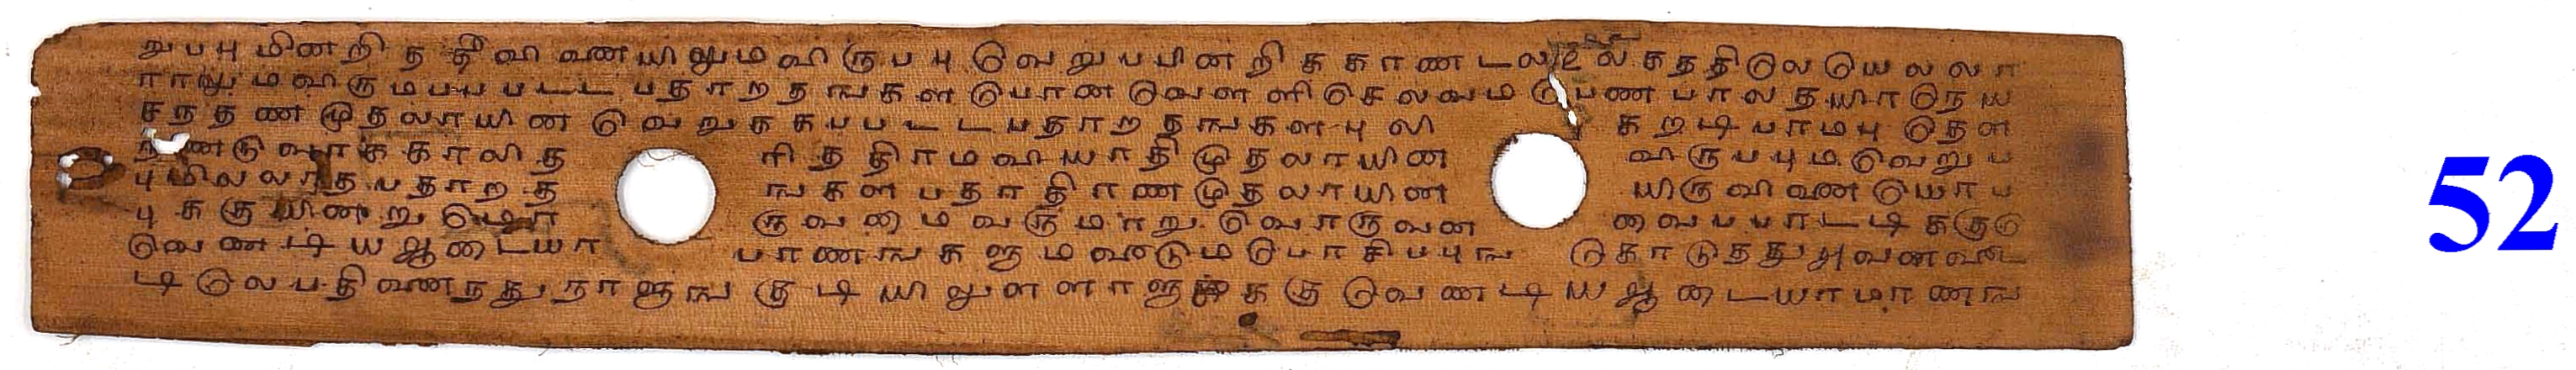 றுபபுமினறி த தீவிணையிலுமவிருபபு வெறுபபினறிககாணடலஉலகததிலெயெலலா
ராலுமவிருமபபபடட பதாறதஙகள பொனவெளளிசெலவமபெண பாலதயிரநெய
சநதனமுதலாயின வெறுககபபடடபதாறதஙகளபுலி கறடிபாமபு தெள
நணடுவாககாலித ரிததிரமவியாதிமுதலாயின விருபபுமவெறுப
புமிலலாதபதாறத ஙகளபதாதிரணமுதலாயின யிருவிணையொப
புககுயினறுமொ ருவமைவருமாறுவொருவன வைபபாடடிககு
வெணடியஆடையா பரணஙகளுமவணடுமபொசிபபுங கொடுததுஅவளவீட
டிலெபதிணைநதுநாளுங குடியிலுளளாளுககுவெணடியஆடையாபரணங
52